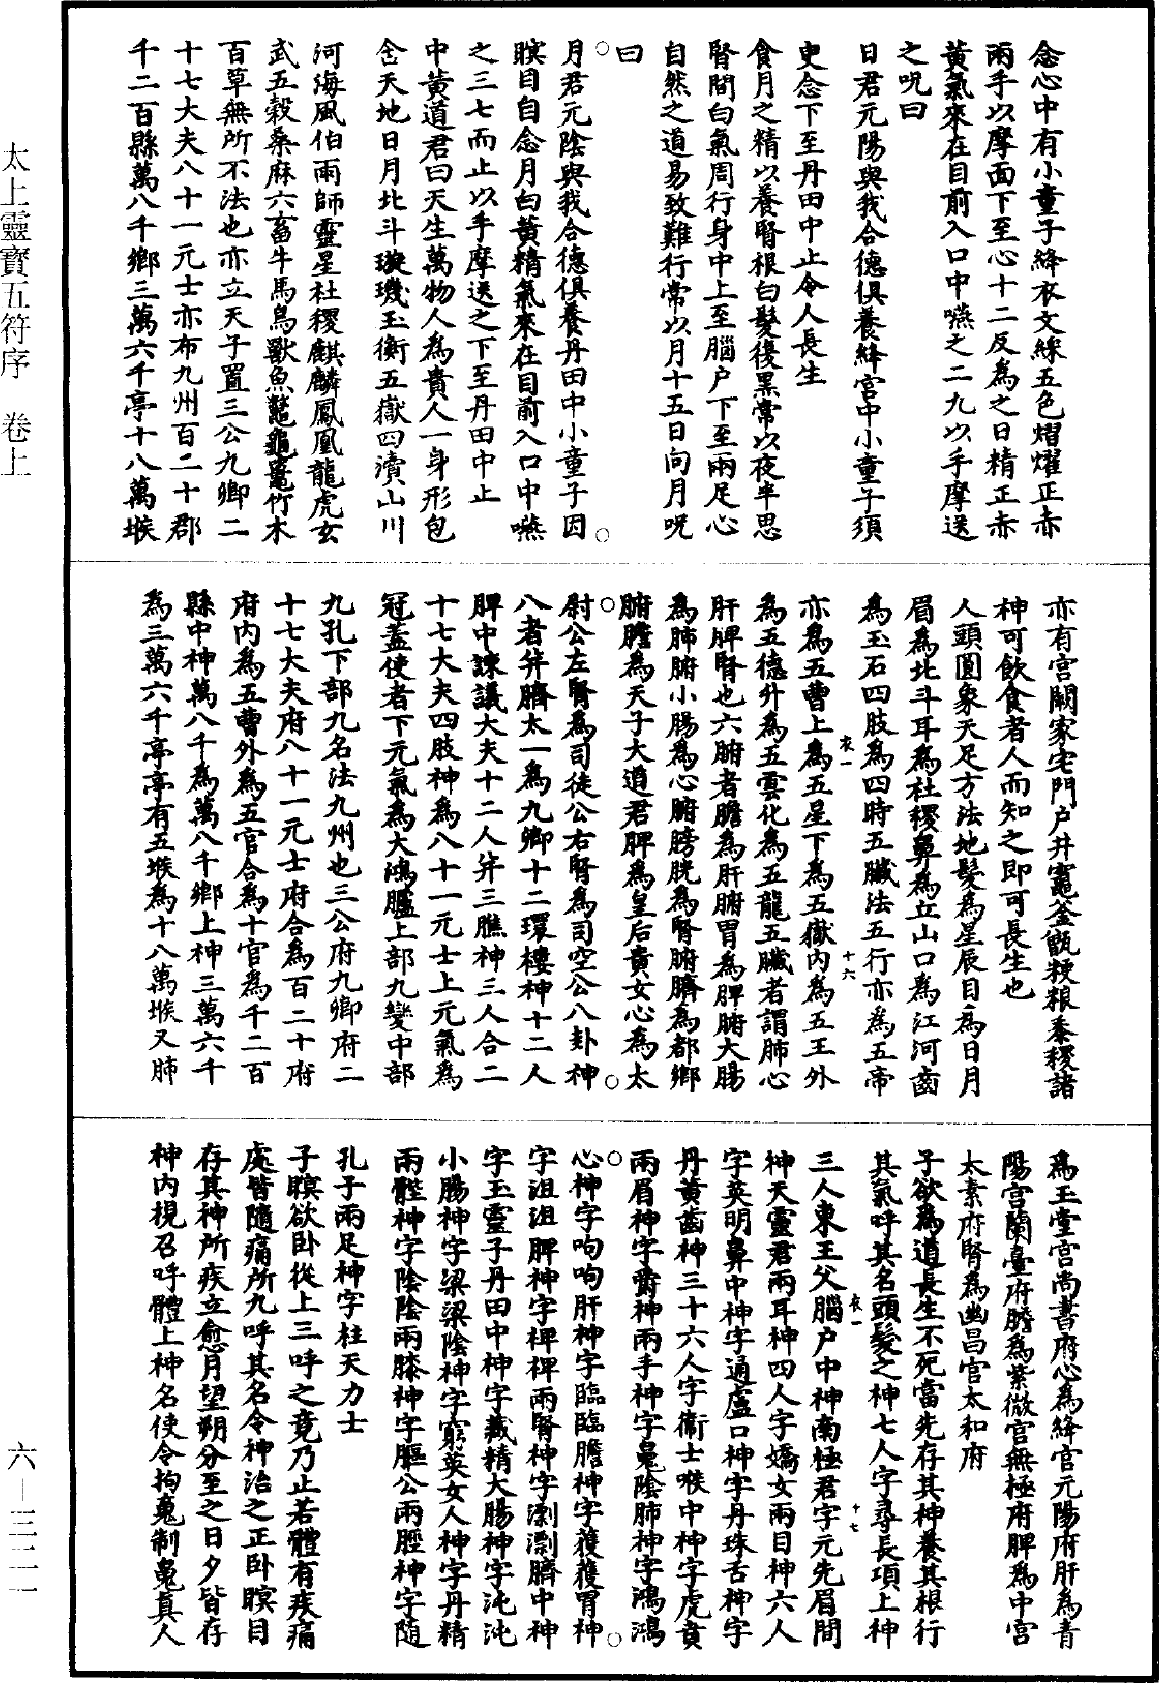 太上靈寶五符序 卷上
六—三二一
念心中有小童子絳衣文綵五色熠燿正赤
兩手以摩面下至心十二反為之日精正赤
黃氣來在目前入口中嚥之二九以手摩送
之呪曰
日君元陽與我合德俱養絳宮中小童子須
臾念下至丹田中止令人長生
食月之精以養腎根白髮復黑常以夜半思
腎間白氣周行身中上至腦戶下至兩足心
自然之道易致難行常以月十五日向月呪
曰
月君元陰與我合德俱養丹田中小童子因
瞑目自念月白黃精氣來在目前入口中嚥
之三七而止以手摩送之下至丹田中止
中黃道君曰天生萬物人為貴人一身形包
含天地日月北斗璇璣玉衡五嶽四瀆山川
河海風伯雨師靈星社稷麒麟鳳凰龍虎玄
武五穀桑麻六畜牛馬鳥獸魚鼈龜鼉竹木
百草無所不法也亦立天子置三公九卿二
十七大夫八十一元士亦布九州百二十郡
千二百縣萬八千鄉三萬六千亭十八萬堠
亦有宮闕家宅門戶井竈釜甑粳粮黍稷諸
神可飲食者人而知之即可長生也
人頭圓象天足方法地髮為星辰目為日月
眉為北斗耳為社稷鼻為立山口為江河齒
為玉石四肢為四時五臟法五行亦為五帝
亦為五曹上為五星下為五嶽內為五王外
為五德升為五雲化為五龍五臟者謂肺心
肝脾腎也六腑者膽為肝腑胃為脾腑大腸
為肺腑小腸為心腑膀胱為腎腑臍為都鄉
腑膽為天子大道君脾為皇后貴女心為太
尉公左腎為司徒公右腎為司空公八卦神
八者并臍太一為九卿十二環樓神十二人
脾中諫議大夫十二人并三膲神三人合二
十七大夫四肢神為八十一元士上元氣為
冠蓋使者下元氣為大鴻臚上部九變中部
九孔下部九名法九州也三公府九卿府二
十七大夫府八十一元士府合為百二十府
府內為五曹外為五官合為十官為千二百
縣中神萬八千為萬八千鄉上神三萬六千
為三萬六千亭亭有五堠為十八萬堠又肺
衣一
十六
為玉堂宮尚書府心為絳宮元陽府肝為青
陽宮蘭臺府膽為紫微宮無極府脾為中宮
太素府腎為幽昌宮太和府
子欲為道長生不死當先存其神養其根行
其氣呼其名頭髮之神七人字尋長項上神
三人東王父腦戶中神南極君字元先眉間
神天靈君兩耳神四人字嬌女兩目神六人
字英明鼻中神字通盧口神字丹珠舌神字
丹黃齒神三十六人字衞士喉中神字虎賁
兩眉神字嚼神兩手神字魄陰肺神字鴻鴻
心神字呴呴肝神字臨臨膽神字獲獲胃神
字沮沮脾神字裨裨兩腎神字漂漂臍中神
字玉靈子丹田中神字藏精大腸神字沌沌
小腸神字梁梁陰神字窮英女人神字丹精
兩髀神字陰陰兩膝神字膒公兩脛神字隨
孔子兩足神字柱天力士
子瞑欲卧從上三呼之竟乃止若體有疾痛
處皆隨痛所九呼其名令神治之正卧瞑目
存其神所疾立愈月望朔分至之日夕皆存
神內視召呼體上神名使令拘魂制魄真人
衣一
十七